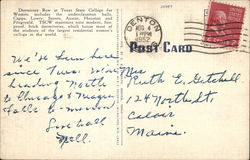 Dormitory Row at Texas State College for
Women, includes the underclassmen halls,
Capps, Lowry, Sayers, Austin, Houston and
Fitzgerald. TSCW maintains nine modern, fire-
proof, brick dormitories, which house most of
the students of the largest residential women's
college in the world.
DENTON
1 PM
1952
POST CARD
We've been here
since Tues. now
heading North
to Chicago & Niagra
Falls
Love to all
Nell.
Mrs
Ruth E. Getchell
124 North St
Calais
Maine.